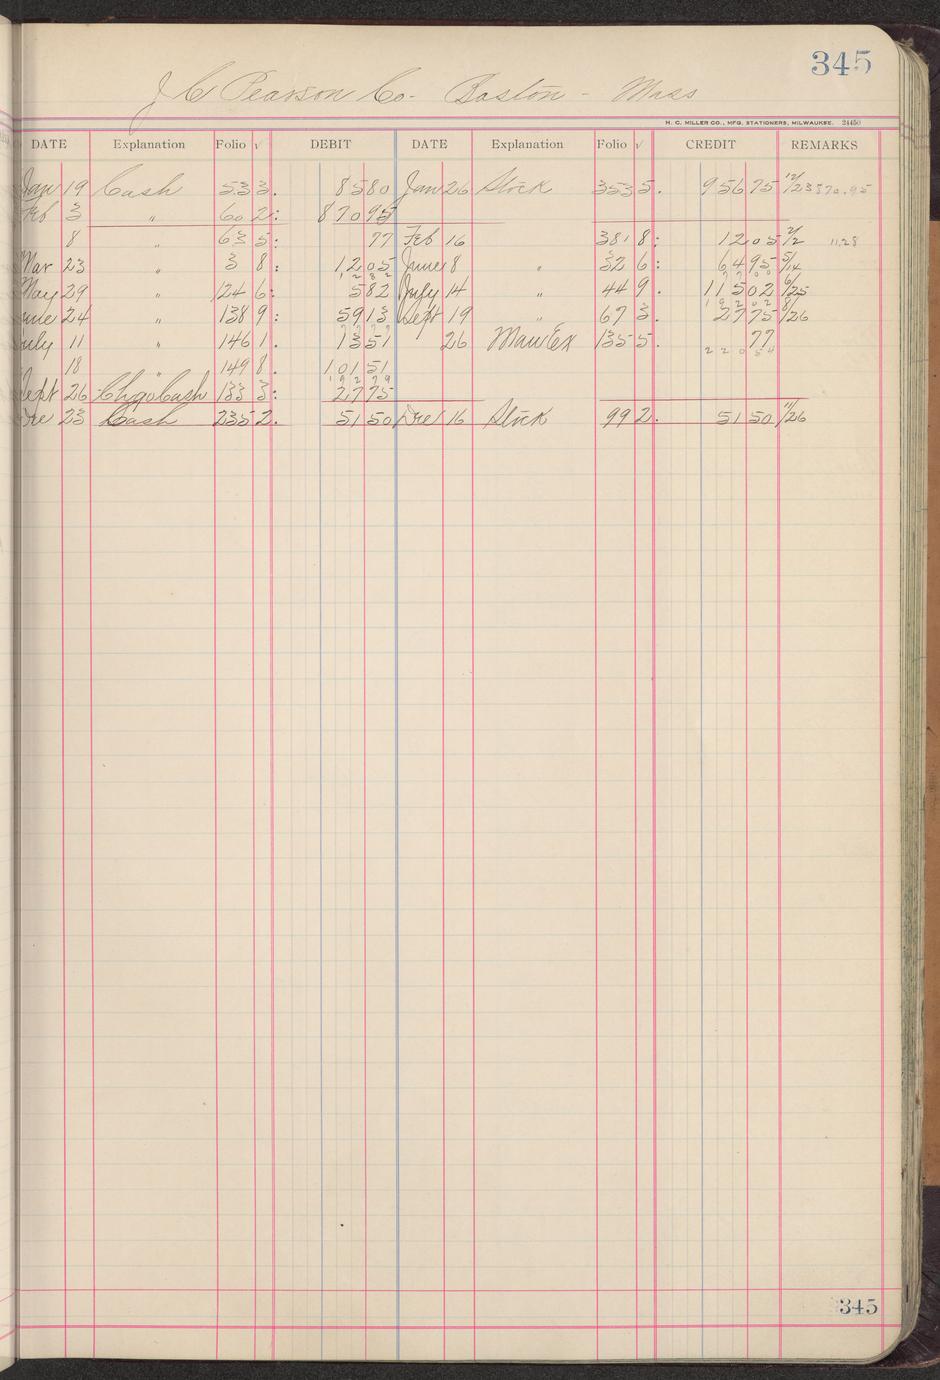 345
J C Pearson Co. Boston - Mass
H. C. MILLER CO., MFG. STATIONERS, MILWAUKEE. 24450
DATE Explanation Folio √ DEBIT DATE Explanation Folio √ CREDIT REMARKS
Jan 19 Cash 533. 8580 Jan 26 Stock 3535. 95675 12/23 870.95
Feb 3 " 602: 87095
8 " 635: 77 Feb 16 3818: 1205 2/2 11.28
Mar 23 " 38: 1205 June 8 " 326: 6495 5/14
May 29 " 1246: 582 July 14 " 449. 11502 6/25
June 24 " 1389: 5913 Sept 19 " 673. 2775 8/26
July 11 " 1461. 1351 26 Man Ex 1355. 77
18 " 1498. 10151
Sept 26 Chgo Cash 133 3: 2775
Dec 23 Cash 2352. 5150 Dec 16 Stock 992. 5150 11/26
345